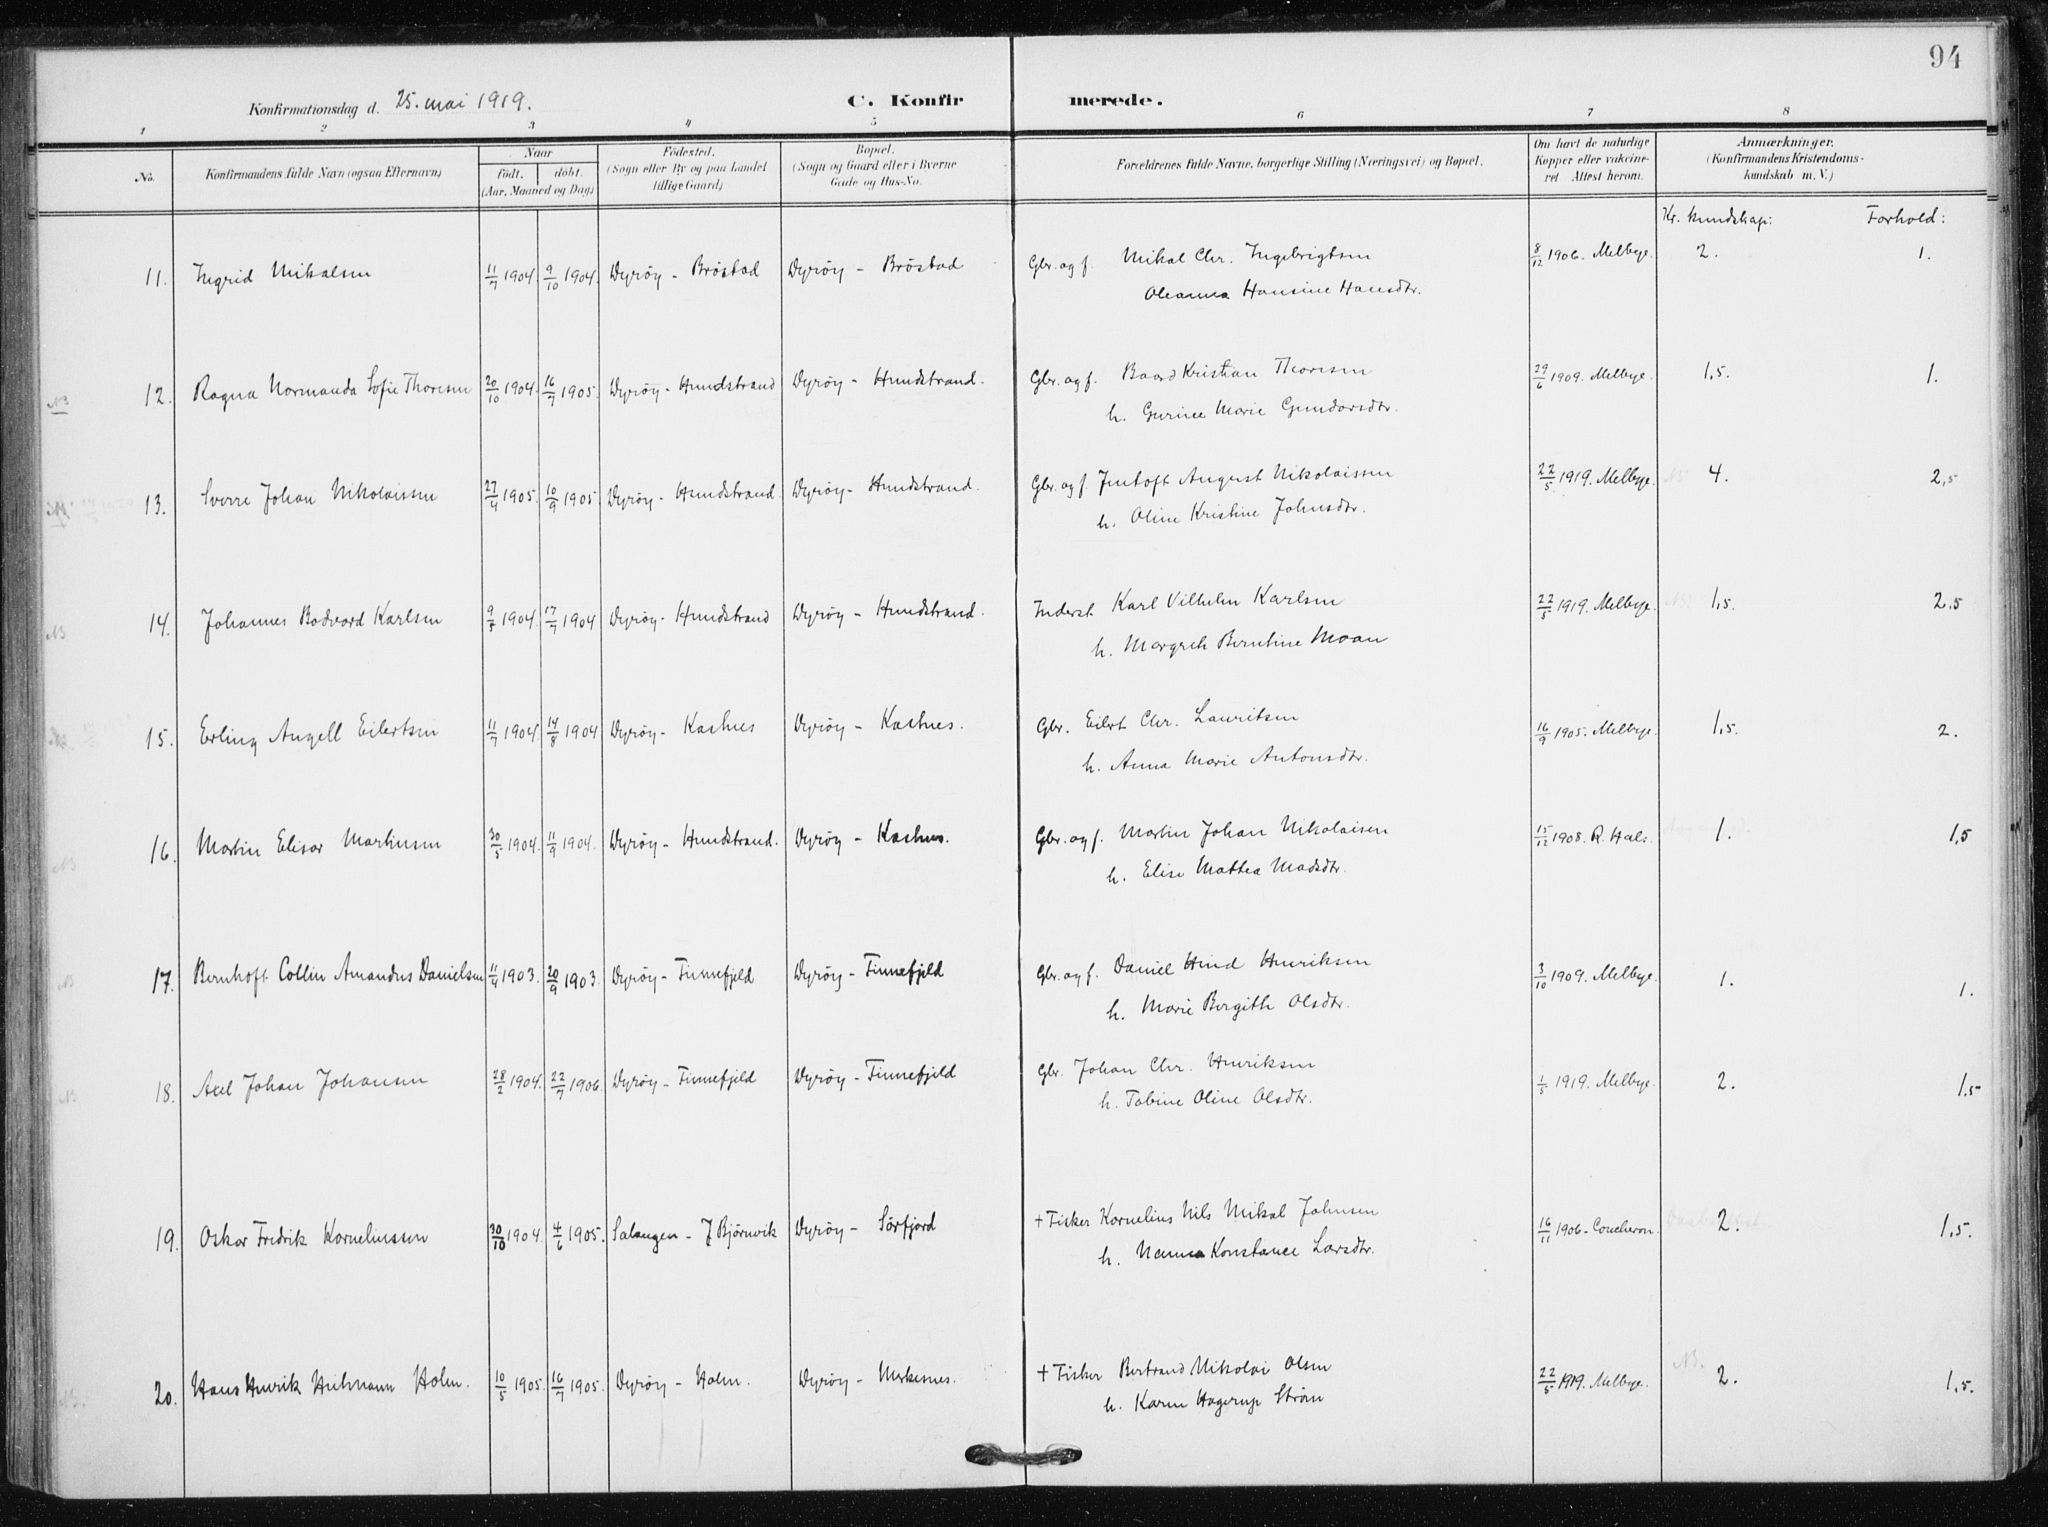 94
Konfirmationsdag d. 25. mai 1919. C. Konfirmerede.
1 2 3 4 5 6 7 8
No. Konfirmandens fulde Navn (ogsaa Efternavn) Naar født. døbt. (Aar, Maaned og Dag) Fødested. (Sogn eller By og paa Landet tillige Gaard) Bopæl. (Sogn og Gaard eller i Byerne Gade og Hus-No. Forældrenes fulde Navne, borgerlige Stilling (Næringsvei) og Bopæl. Om havt de naturlige Kopper eller vakcineret Attest herom. Anmærkninger. (Konfirmandens Kristendomskundskab m. V.)
Kr. kundskap: Forhold:
11. Ingrid Mikalsen 11/7 1904. 9/10 1904. Dyrøy - Brøstad Dyrøy - Brøstad Gbr. og f. Mikal Chr. Ingebrigtsen 8/12 1906. Melbye. 2. 1.
Oleanna Hansine Hansdtr.
NB 12. Ragna Normanda Sofie Thoresen 20/10 1904. 16/7 1905. Dyrøy - Hundstrand Dyrøy - Hundstrand. Gbr. og f. Baard Kristian Thoresen 29/6 1909. Melbye. 1,5. 1.
h. Gurine Marie Gundersdtr.
13. Sverre Johan Nikolaissen 27/4 1905. 10/9 1905. Dyrøy - Hundstrand. Dyrøy - Hundstrand. Gbr. og f. Jentoft August Nikolaissen 22/5 1919. Melbye. 4. 2,5
h. Oline Kristine Johnsdtr.
NB 14. Johannes Bodvard Karlsen 9/5 1904. 17/7 1904 Dyrøy - Hundstrand Dyrøy - Hundstrand. Inderst Karl Vilhelm Karlsen 22/5 1919. Melbye. 1,5. 2,5
h. Margreth Berntine Moan
15. Erling Angell Eilertsen 11/7 1904. 14/8 1904 Dyrøy - Kastnes Dyrøy - Kastnes. Gbr. Eilert Chr. Lauritsen 16/9 1905. Melbye. 1,5. 2.
h. Anna Marie Antonsdtr.
NB 16. Martin Elisar Martinsen 30/5 1904. 11/9 1904. Dyrøy - Hundstrand. Dyrøy - Kastnes. Gbr. og f. Martin Johan Nikolaisen 15/12 1908. R. Hals. 1. 1,5
h. Elise Mattea Madsdtr.
NB 17. Bernhoft Collin Amandus Danielsen 11/4 1903. 20/9 1903. Dyrøy - Finnefjeld Dyrøy - Finnefjeld Gbr. og f. Daniel Hind Henriksen 3/10 1909. Melbye. 1. 1.
h. Marie Bergith Olsdtr.
NB 18. Axel Johan Johansen 28/2 1904. 22/7 1906 Dyrøy - Finnefjeld Dyrøy - Finnefjeld Gbr. Johan Chr. Henriksen 1/5 1919. Melbye. 2. 1,5
h. Tobine Oline Olsdtr.
19. Oskar Fredrik Korneliussen 30/10 1904. 4/6 1905. Salangen - J Bjørnvik Dyrøy - Sørfjord + Fisker Kornelius Nils Mikal Johnsen 16/11 1906 - Coucheron. 2. 1,5.
h. Nanna Konstance Larsdtr.
NB. 20. Hans Henrik Hilmann Holm. 10/5 1905. 16/7 1905. Dyrøy - Holm. Dyrøy - Mikkesnes. + Fisker Bertrand Nikolai Olsen 22/5 1919. Melbye. NB. 2. 1,5.
h. Karen Hagerup Strøm